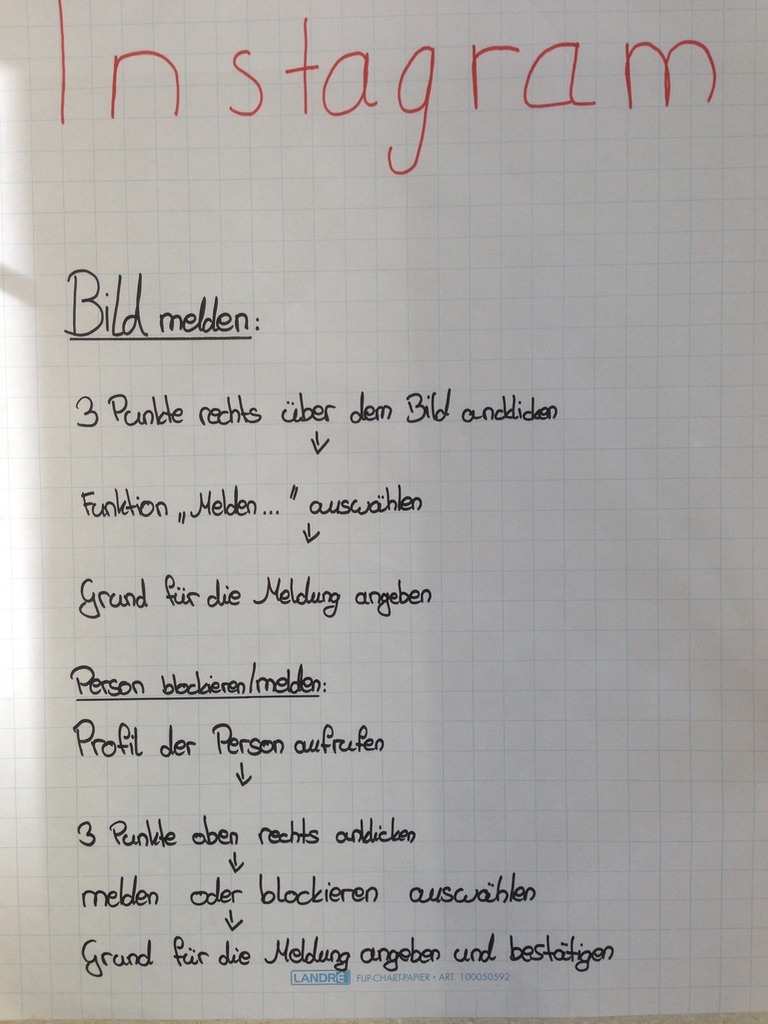 Instagram
Bild melden:
3 Punkte rechts über dem Bild anklicken
↓
Funktion „Melden..." auswählen
↓
Grund für die Meldung angeben
Person blockieren/melden:
Profil der Person aufrufen
↓
3 Punkte oben rechts anklicken
↓
melden oder blockieren auswählen
↓
Grund für die Meldung angeben und bestätigen
LANDRÉ FLIP-CHART-PAPIER • ART. 100050592